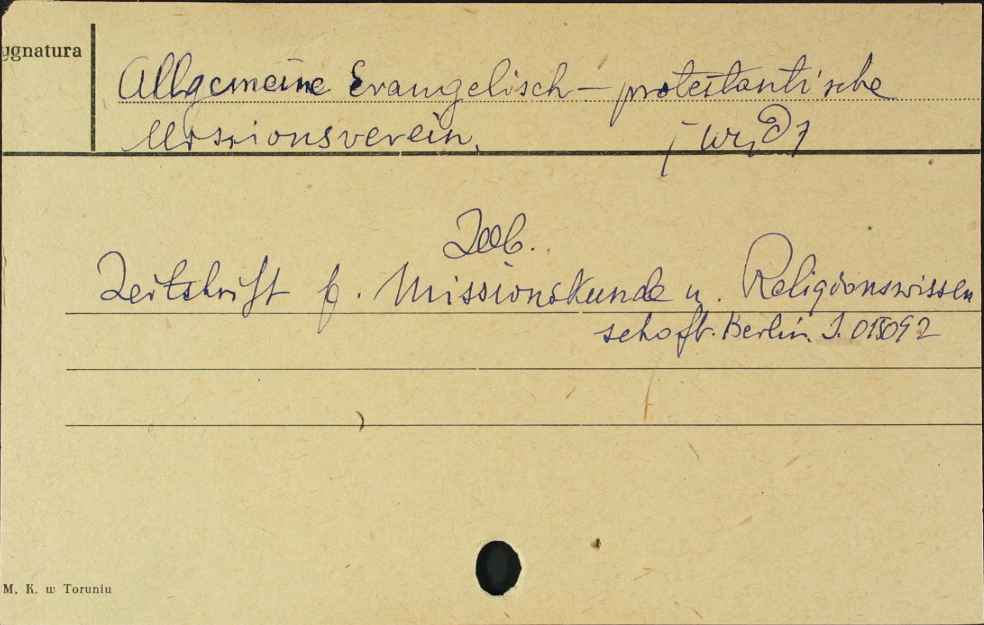 ygnatura
Allgemeine Evangelisch-protestantische
Missionsverein.
[Wyd]
Zob.
Zeitschrift f. Missionskunde u. Religionswissen
schaft. Berlin. S. 015092
M. K. w Toruniu